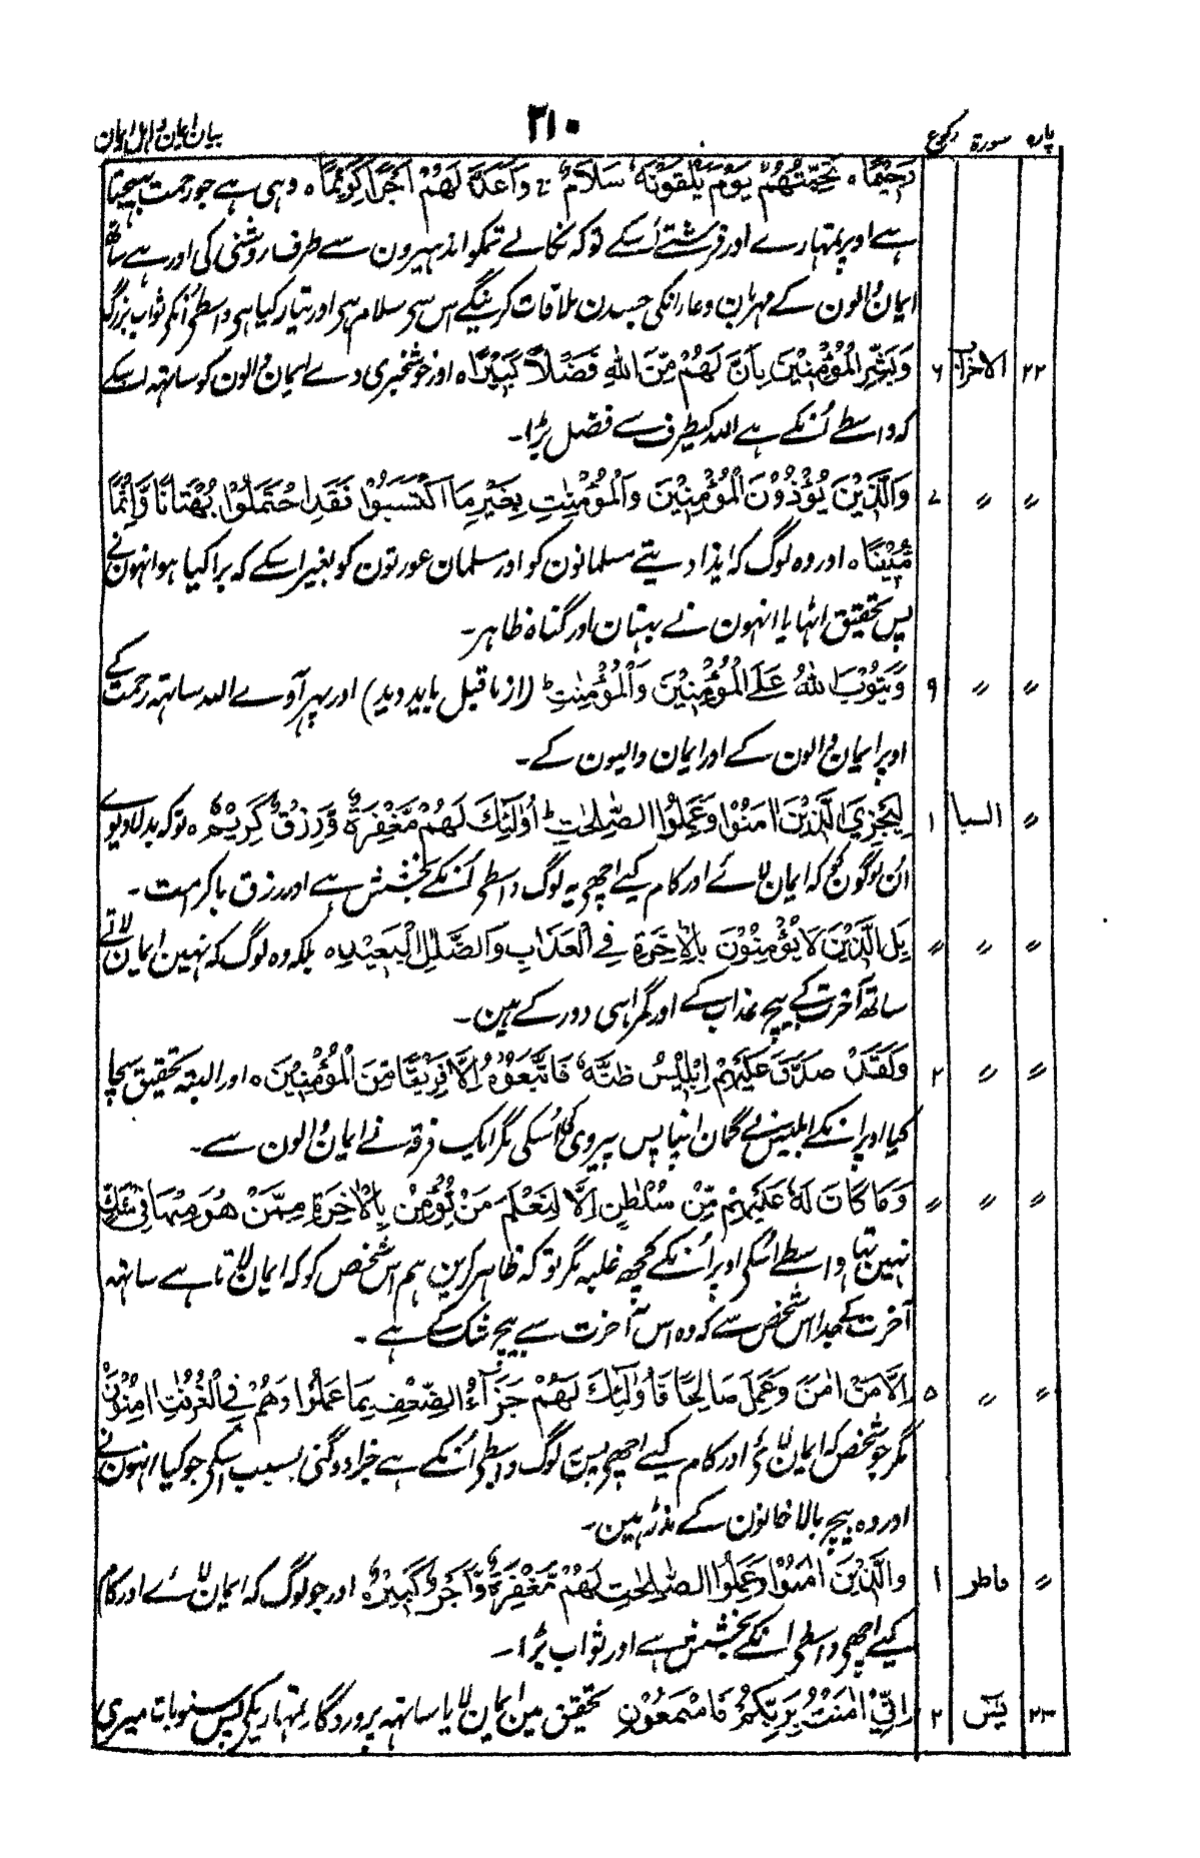 پارہ سورۃ رکوع ۳۱۰ بیان ایمان و اہل ایمان
رَحِيْمًا ہ تَحِيَّتُهُمْ يَوْمَ يَلْقَوْنَهٗ سَلَامٌ ۖ وَاَعَدَّ لَهُمْ اَجْرًا كَرِيْمًا ہ وہی ہے جو رحمت بہیجتا
ہے اوپر تمہارے اور فرشتے اُسکے توکہ نکالے تمکو اندہیرون سے طرف روشنی کی اور ہے ساتھ
ایمان والون کے مہربان دعا رانکی جسدن ملاقات کرینگے اس سی سلام ہی اور تیار کیا ہی واسطے اُنکی ثواب بزرگ
۲۲ الاحزاب ۶ وَبَشِّرِ الْمُؤْمِنِيْنَ بِاَنَّ لَهُمْ مِّنَ اللّٰهِ فَضْلًا كَبِيْرًا ہ اور خوشخبری دے ایمان والون کو ساتہہ اسکے
کہ واسطے اُنکے ہے اللہ کیطرف سے فضل بڑا۔
〃 〃 ۷ وَالَّذِيْنَ يُؤْذُوْنَ الْمُؤْمِنِيْنَ وَالْمُؤْمِنٰتِ بِغَيْرِ مَا اكْتَسَبُوْا فَقَدِ احْتَمَلُوْا بُهْتَانًا وَّاِثْمًا
مُّبِيْنًا ہ اور وہ لوگ کہ ایذا دیتے مسلمانون کو اور مسلمان عورتون کو بغیر اسکے کہ برا کیا ہو انہون نے
پس تحقیق اٹہایا انہون نے بہتان اور گناہ ظاہر۔
〃 〃 ۹ وَيَتُوْبَ اللّٰهُ عَلَى الْمُؤْمِنِيْنَ وَالْمُؤْمِنٰتِ ؕ (از ماقبل باید دید) اور پہر آوے اللہ ساتہہ رحمت کے
اوپر ایمان والون کے اور ایمان والیون کے۔
〃 السبا ۱ لِيَجْزِيَ الَّذِيْنَ اٰمَنُوْا وَعَمِلُوا الصّٰلِحٰتِ ؕ اُولٰٓئِكَ لَهُمْ مَّغْفِرَةٌ وَّرِزْقٌ كَرِيْمٌ ہ توکہ بدلا دیوے
اُن لوگون کو کہ ایمان لائے اور کام کیے اچھے یہ لوگ واسطے اُنکے بخشش ہے اور رزق باکرامت۔
〃 〃 〃 بَلِ الَّذِيْنَ لَا يُؤْمِنُوْنَ بِالْاٰخِرَةِ فِي الْعَذَابِ وَالضَّلٰلِ الْبَعِيْدِ ہ بلکہ وہ لوگ کہ نہین ایمان لاتے
ساتھ آخرت کے بیچ عذاب کے اور گمراہی دور کے ہین۔
〃 〃 ۲ وَلَقَدْ صَدَّقَ عَلَيْهِمْ اِبْلِيْسُ ظَنَّهٗ فَاتَّبَعُوْهُ اِلَّا فَرِيْقًا مِّنَ الْمُؤْمِنِيْنَ ہ اور البتہ تحقیق سچا
کیا اوپر انکے ابلیس نے گمان اپنا پس پیروی کی اُسکی مگر ایک فرقہ نے ایمان والون سے۔
〃 〃 〃 وَمَا كَانَ لَهٗ عَلَيْهِمْ مِّنْ سُلْطٰنٍ اِلَّا لِنَعْلَمَ مَنْ يُّؤْمِنُ بِالْاٰخِرَةِ مِمَّنْ هُوَ مِنْهَا فِيْ شَكٍّ
نہین تہا واسطے اُسکی اوپر اُنکے کچھ غلبہ مگر توکہ ظاہر کرین ہم اس شخص کو کہ ایمان لاتا ہے ساتہہ
آخرت کے جدا اس شخص سے کہ وہ اس آخرت سے بیچ شک کے ہے۔
〃 〃 ۵ اِلَّا مَنْ اٰمَنَ وَعَمِلَ صَالِحًا فَاُولٰٓئِكَ لَهُمْ جَزَآءُ الضِّعْفِ بِمَا عَمِلُوْا وَهُمْ فِي الْغُرُفٰتِ اٰمِنُوْنَ
مگر جو شخص کہ ایمان لائے اور کام کیے اچھے پس یہ لوگ واسطے اُنکے ہے جزا دوگنی بسبب اسکی جو کیا انہون نے
اور وہ بیچ بالاخانون کے نڈر ہین۔
〃 فاطر ۱ وَالَّذِيْنَ اٰمَنُوْا وَعَمِلُوا الصّٰلِحٰتِ لَهُمْ مَّغْفِرَةٌ وَّاَجْرٌ كَبِيْرٌ ہ اور جو لوگ کہ ایمان لائے اور کام
کیے اچھے واسطے انکے بخشش ہے اور ثواب بڑا۔
۲۳ یٰسٓ ۲ اِنِّيْ اٰمَنْتُ بِرَبِّكُمْ فَاسْمَعُوْنِ تحقیق مین ایمان لایا ساتہہ پروردگار تمہاریکی پس سنو بات میری